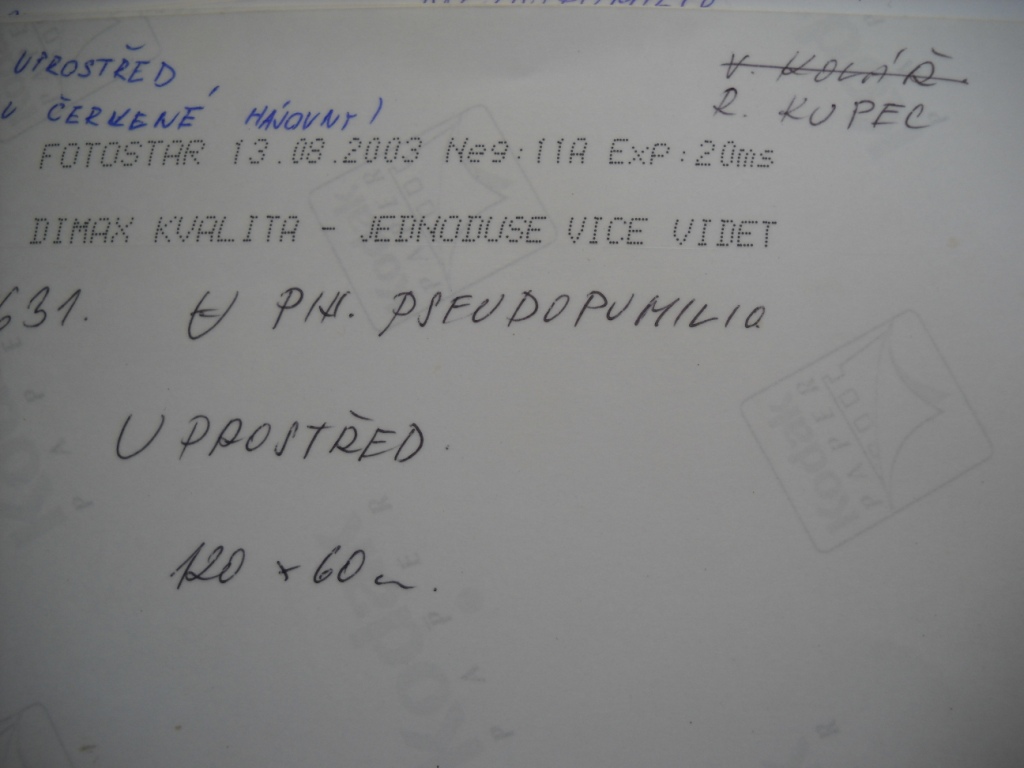 UPROSTŘED,
U ČERVENÉ HÁJOVNY)
V. KOLÁŘ
R. KUPEC
FOTOSTAR 13.08.2003 Neg:11A Exp:20ms
DIMAX KVALITA - JEDNODUSE VICE VIDET
631. PIN. PSEUDOPUMILIO
UPROSTŘED.
120 x 60
Kodak
PAPER